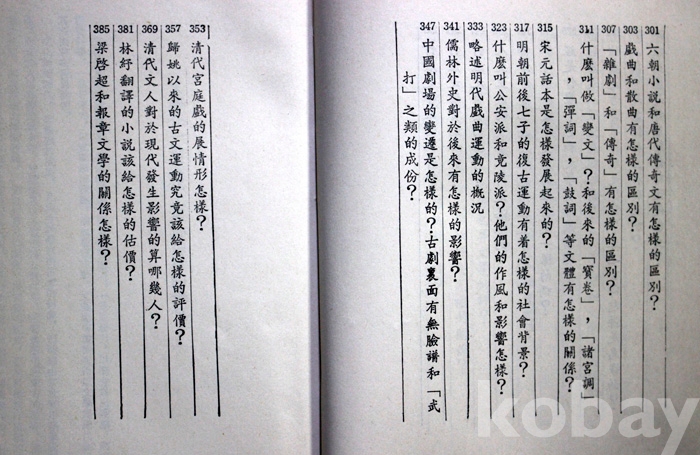 301 六朝小説和唐代傳奇文有怎樣的區別？
303 戲曲和散曲有怎樣的區別？
307 「雜劇」和「傳奇」有怎樣的區別？
311 什麼叫做「變文」？和後來的「寶卷」，「諸宮調」
，「彈詞」，「鼓詞」等文體有怎樣的關係？
315 宋元話本是怎樣發展起來的？
317 明朝前後七子的復古運動有着怎樣的社會背景？
323 什麼叫公安派和竟陵派？他們的作風和影響怎樣？
333 略述明代戲曲運動的概況
341 儒林外史對於後來有怎樣的影響？
347 中國劇場的變遷是怎樣的？古劇裏面有無臉譜和「武
打」之類的成份？
353 清代宮庭戲的展情形怎樣？
357 歸姚以來的古文運動究竟該給怎樣的評價？
369 清代文人對於現代發生影響的算哪幾人？
381 林紓翻譯的小說該給怎樣的估價？
385 梁啓超和報章文學的關係怎樣？
kobay